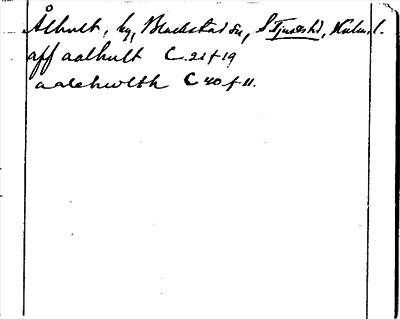 Ålhult, by, Blackstad sn, S. Tjusts hd, Kalm. l.
aff aalhult C 21 f 19
aalehwlth C 40 f 11.